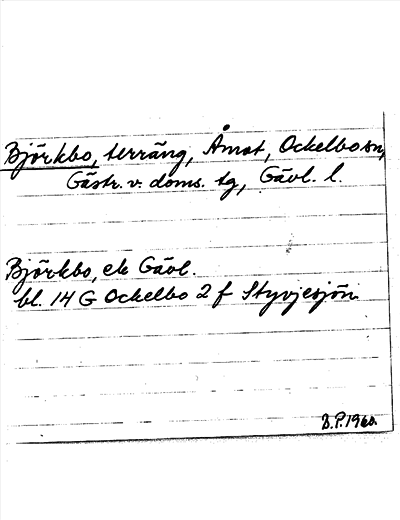 Björkbo, terräng, Åmot, Ockelbo sn,
Gästr. v. doms. tg, Gävl. l.
Björkbo, ek Gävl.
bl. 14 G Ockelbo 2 f Styvjesjön
D.P. 1960.